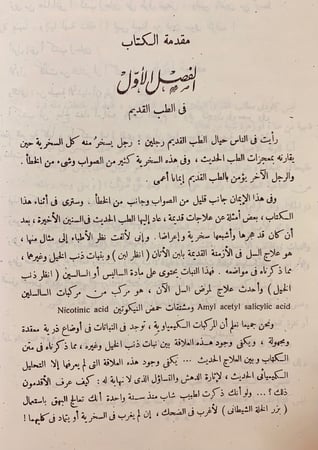 مقدمة الكتاب
الفصل الأول
فى الطب القديم
رأيت فى الناس حيال الطب القديم رجلين : رجل يسخر منه كل السخرية حين
يقارنه بمعجزات الطب الحديث ، وفى هذه السخرية كثير من الصواب وشىء من الخطأ .
والرجل الآخر يؤمن بالطب القديم إيمانا أعمى .
وفى هذا الإيمان جانب قليل من الصواب وجانب من الخطأ . وسترى فى أثناء هذا
الكتاب ، بعض أمثلة عن علاجات قديمة ، عاد إليها الطب الحديث فى السنين الأخيرة ، بعد
أن كان قد هجرها وأشبعها سخرية وإعراضا . وإنى لألفت نظر الأطباء إلى مثال منها ،
هو علاج السل فى الأزمنة القديمة بلبن الأتان ( انظر لبن ) وبنبات ذنب الخيل وغيرها ،
مما ذكرناه فى مواضعه . فهذا النبات يحتوى على مادة الساليس أو السالسين ( انظر ذنب
الخيل ) وأحدث علاج لمرض السل الآن ، هو مركب من مركبات السالسلين
Amyl acetyl salicylic acid ومشتقات حمض النيكوتين Nicotinic acid
ونحن جميعا نعلم أن المركبات الكيمياوية ، توجد فى النباتات فى أوضاع ذرية معقدة
ومجهولة . ويكفى وجود هذه العلاقة بين نبات ذنب الخيل وغيره ، مما ذكرناه فى متن
الكتاب وبين العلاج الحديث ... يكفى وجود هذه العلاقة التى لم يعرفها إلا التحليل
الكيميائى الحديث ، لإثارة الدهش والتساؤل الذى لا نهاية له : كيف عرف الأقدمون
ذلك ؟ ... ولو أنك ذكرت لطبيب شاب منذ سنة واحدة أنك تعالج البهق باستعمال
( بزر الخلة الشيطانى ) لأغرب فى الضحك ، إن لم يغرب فى السخرية أو يتماد فى كليهما !